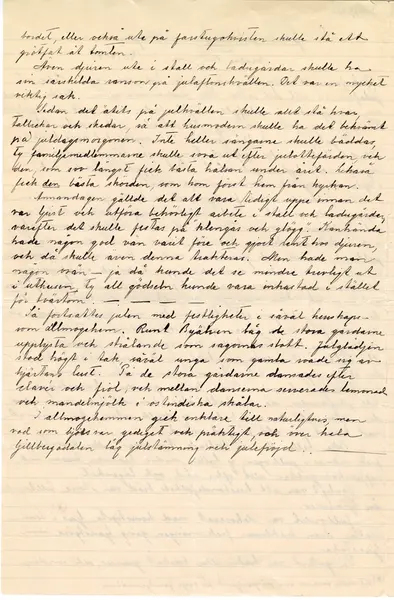 bordet, eller också ute på farstugokvisten skulle stå ett
grötfat åt tomten.
Även djuren ute i stall och ladugårdar skulle ha
sin särskilda ranson på julaftonskvällen. Det var en mycket
viktig sak.
Sedan det ätits på julkvällen skulle allt stå kvar,
tallrikar och skedar, så att husmodern skulle ha det bekvämt
på juldagsmorgonen. Inte heller sängarne skulle bäddas,
ty familjemedlemmarne skulle sova ut efter julottefärden och
den, som sov längst fick bästa hälsan under året. Likaså
fick den bästa skörden, som kom först hem från kyrkan.
Annandagen gällde det att vara tidigt uppe innan det
var ljust och utföra behövligt arbete i stall och ladugårdar,
varefter det skulle festas på klengås och glögg. Kanhända
hade någon god vän varit före och gjort rent hos djuren,
och då skulle även denna trakteras. Men hade man
någon ovän — ja då kunde det se mindre trevligt ut
i uthusen, ty all gödseln kunde vara inkastad i stället
för tvärtom. — — — —
Så fortsattes julen med festligheter i såväl herrskaps-
som allmogehem. Runt Byälven låg de stora gårdarne
upplysta och strålande som sagornas slott. Julglädjen
stod högt i tak, såväl unga som gamla roade sig av
hjärtans lust. På de stora gårdarne dansades efter
claver och fiol, och mellan danserna serverades lemonad
och mandelmjölk i ostindiska skålar.
I allmogehemmen gick enklare till naturligtvis, men
vad som bjöds var gediget och präktigt, och över hela
Gillbergadalen låg julstämning och julefröjd. —